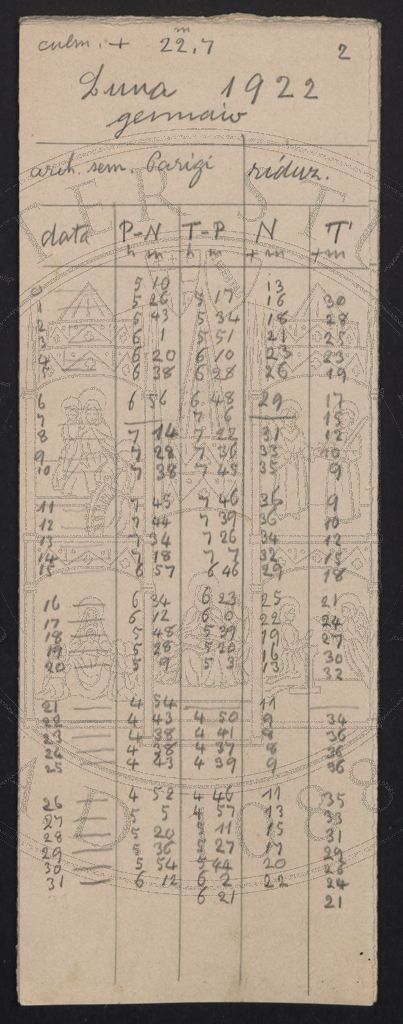 culm. + 22,7 m
2
Luna 1922
gennaio
arch. sem. Parigi riduz.
data P-N T-P N T
h m h m + m + m
0 5 10 13
1 5 26 5 17 16 30
2 5 43 5 34 18 28
3 6 1 5 51 21 25
4 6 20 6 10 23 23
5 6 38 6 28 26 19
6 6 56 6 48 29 17
7 7 6 15
8 7 14 7 22 31 12
9 7 28 7 36 33 10
10 7 38 7 43 35 9
11 7 45 7 46 36 9
12 7 44 7 39 36 10
13 7 34 7 26 34 12
14 7 18 7 7 32 15
15 6 57 6 46 29 18
16 6 34 6 23 25 21
17 6 12 6 0 22 24
18 5 48 5 39 19 27
19 5 28 5 20 16 30
20 5 9 5 3 13 32
21 4 54 11
22 4 43 4 50 9 34
23 4 38 4 41 8 36
24 4 38 4 37 8 36
25 4 43 4 39 9 36
26 4 52 4 46 11 35
27 5 5 4 57 13 33
28 5 20 5 11 15 31
29 5 36 5 27 17 29
30 5 54 5 44 20 26
31 6 12 6 2 22 24
6 21 21